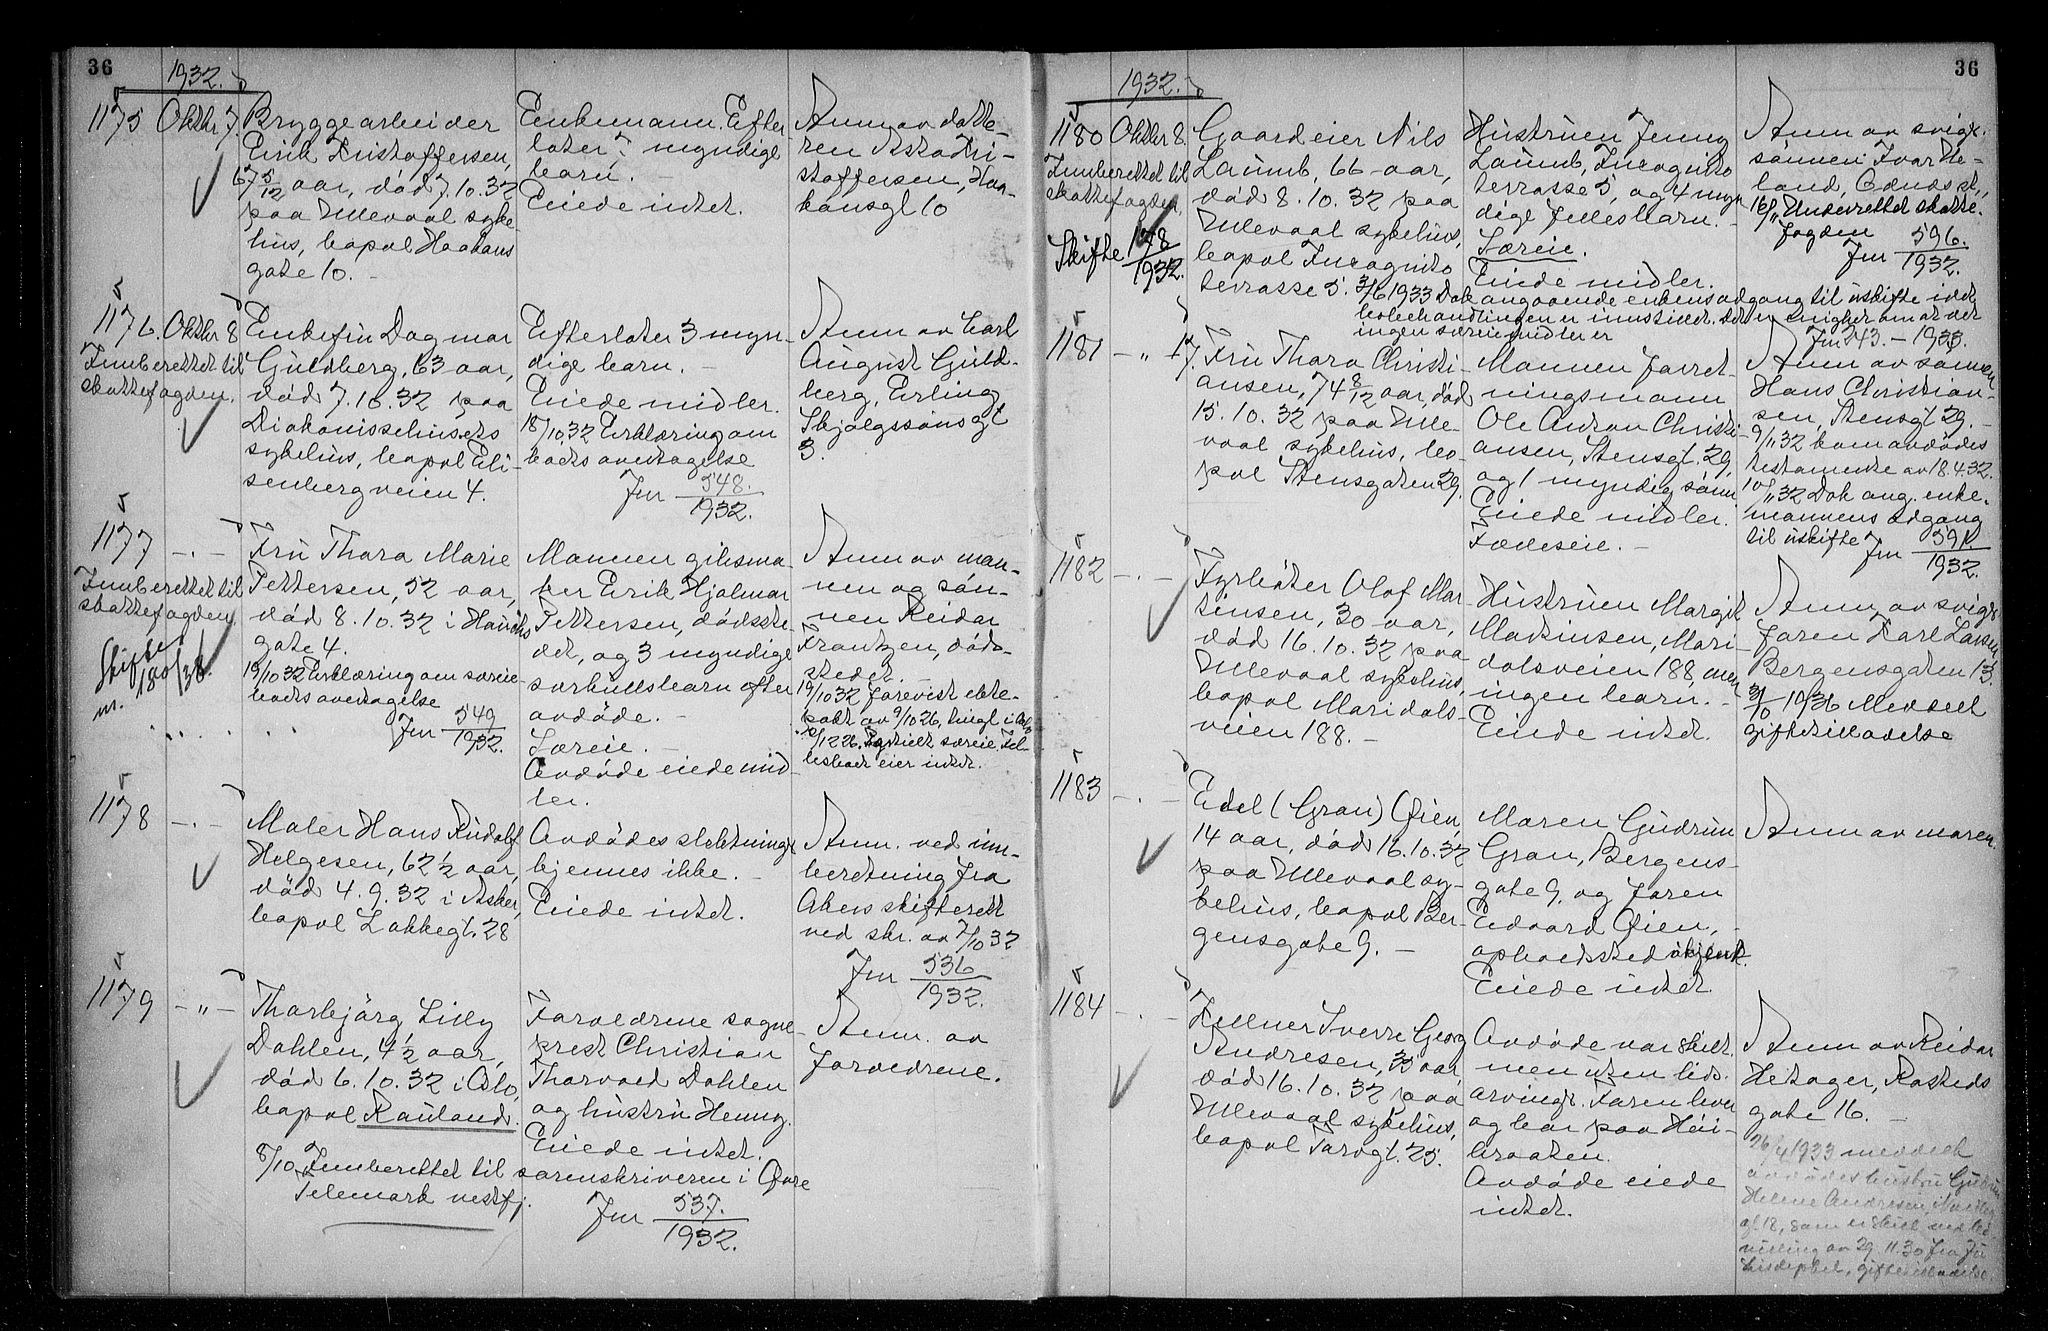 36
1932.
1175 Oktbr 7. Bryggearbeider
Erik Kristoffersen,
67 5/12 aar, død 7.10.32
paa Ullevaal syke-
hus, bopæl Haakons
gate 10. -
Enkemann. Efter-
later 7 myndige
barn. -
Eiede intet.
Anm. av datte-
ren Asta Kri-
stoffersen, Haa-
konsgt 10
1176. Oktbr 8
Innberettet til
skattefogden.
Enkefru Dagmar
Guldberg, 63 aar,
død 7.10.32 paa
Diakonissehusets
sykehus, bopæl Eli-
senbergveien 4.
Efterlater 3 myn-
dige barn. -
Eiede midler.
18/10 32 Erklæring om
boets overtagelse
Jnr 548.
1932.
Anm av Carl
August Guld-
berg, Erling
Skjalgssønsgt
3.
1177 - " -
Innberettet til
skattefogden
Skifte
nr. 180/38.
Fru Thora Marie
Pettersen, 52 aar,
død 8.10.32 i Hauchs
gate 4.
19/10 32 Erklæring om særeie-
boets overtagelse
Jnr 549
1932.
Mannen gibsma-
ker Erik Hjalmar
Pettersen, dødsste-
det, og 3 myndige
særkullsbarn efter
avdøde. -
Særeie. -
Avdøde eiede mid-
ler.
Anm av man-
nen og søn-
nen Reidar
Frantzen, døds-
stedet. -
19/10 32 forevist ekte-
pakt av 9/10 26, tingl. i Oslo
Fel-
lesboet eier intet.
1178 - " -
Maler Hans Rudolf
Helgesen, 62 1/2 aar,
død 4.9.32 i Asker,
bopæl Lakkegt. 28
Avdødes slektninger
kjennes ikke. -
Eiede intet.
Anm. ved inn-
beretning fra
Akers skifterett
ved skr. av 7/10 32
Jnr 536
1932.
1179 - " -
Thorbjørg Lilly
Dahlen, 4 1/2 aar,
død 6.10.32 i Oslo,
bopæl Rauland.
8/10 Innberettet til sorenskriveren i Øvre
Telemark vestfj.
Forældrene sogne-
prest Christian
Thorvald Dahlen
og hustru Henny.
Eiede intet.
Jnr 537.
1932.
Anm. av
forældrene.
36
1932.
1180 Oktbr 8.
Innberettet til
skattefogden,
Skifte 178
1932.
Gaardeier Nils
Laumb, 66 aar,
død 8.10.32 paa
Ullevaal sykehus,
bopæl Incognito
terrasse 5.
Hustruen Jenny
Laumb, Incognito
terrasse 5, og 4 myn-
dige fellesbarn. -
Særeie.
Eiede midler.
Anm av svige-
sønnen Ivar He-
land,
Underrettet skatte-
fogden
Jnr 596.
1932.
3/6 1933 Dok angaaende enkens adgang til uskifte idet
bobehandlingen er innstillet. Det er enighet om at det
ingen særeiemidler er
Jnr 243. - 1933.
1181 - " - 17.
Fru Thora Christi-
ansen, 74 8/12 aar, død
15.10.32 paa Ulle-
vaal sykehus, bo-
pæl Stensgaten 29.
Mannen forret-
ningsmann
Ole Anton Christi-
ansen, Stensgt. 29,
og 1 myndig sønn
Eiede midler.
Fælleseie. -
Anm av sønnen
Hans Christian-
sen, Stensgt 29. -
9/11 32 kom avdødes
testamente av 18.4.32.
10/11 32 Dok ang. enke-
mannens adgang
til uskifte Jnr 591.
1932.
1182 - " -
Fyrbøter Olaf Mar-
tinsen, 30 aar,
død 16.10.32 paa
Ullevaal sykehus,
bopæl Maridals-
veien 188. -
Hustruen Margit
Martinsen, Mari-
dalsveien 188, men
ingen barn. -
Eiede intet.
Anm av svige-
faren Karl Larsen
Bergensgaten 13.
1936 Meddelt
giftetilladelse
1183 - " -
Edel (Gran) Øien,
14 aar, død 16.10.32
paa Ullevaal sy-
kehus, bopæl Ber-
gensgate 9. -
Moren Gudrun
Gran, Bergens-
gate 9, og faren
Edvard Øien, -
opholdssted ukjent.
Eiede intet.
Anm av moren.
1184 - " -
Kellner Sverre Georg
Andresen, 35 aar,
død 16.10.32 paa
Ullevaal sykehus,
bopæl Torvgt. 25.
Avdøde var skilt
men uten livs-
arvinger. Faren lever
og bor paa Høi-
braaten.
Avdøde eiede
intet.
Anm av Reidar
Hetager, Rosteds
gate 16. -
26/4 1933 meddelt
avdødes hustru Gudrun
Helene Andresen,
gt 18, som er skilt ved bev-
illing av 29.11.30 fra Ju-
stisdeptet, giftetilladelse.